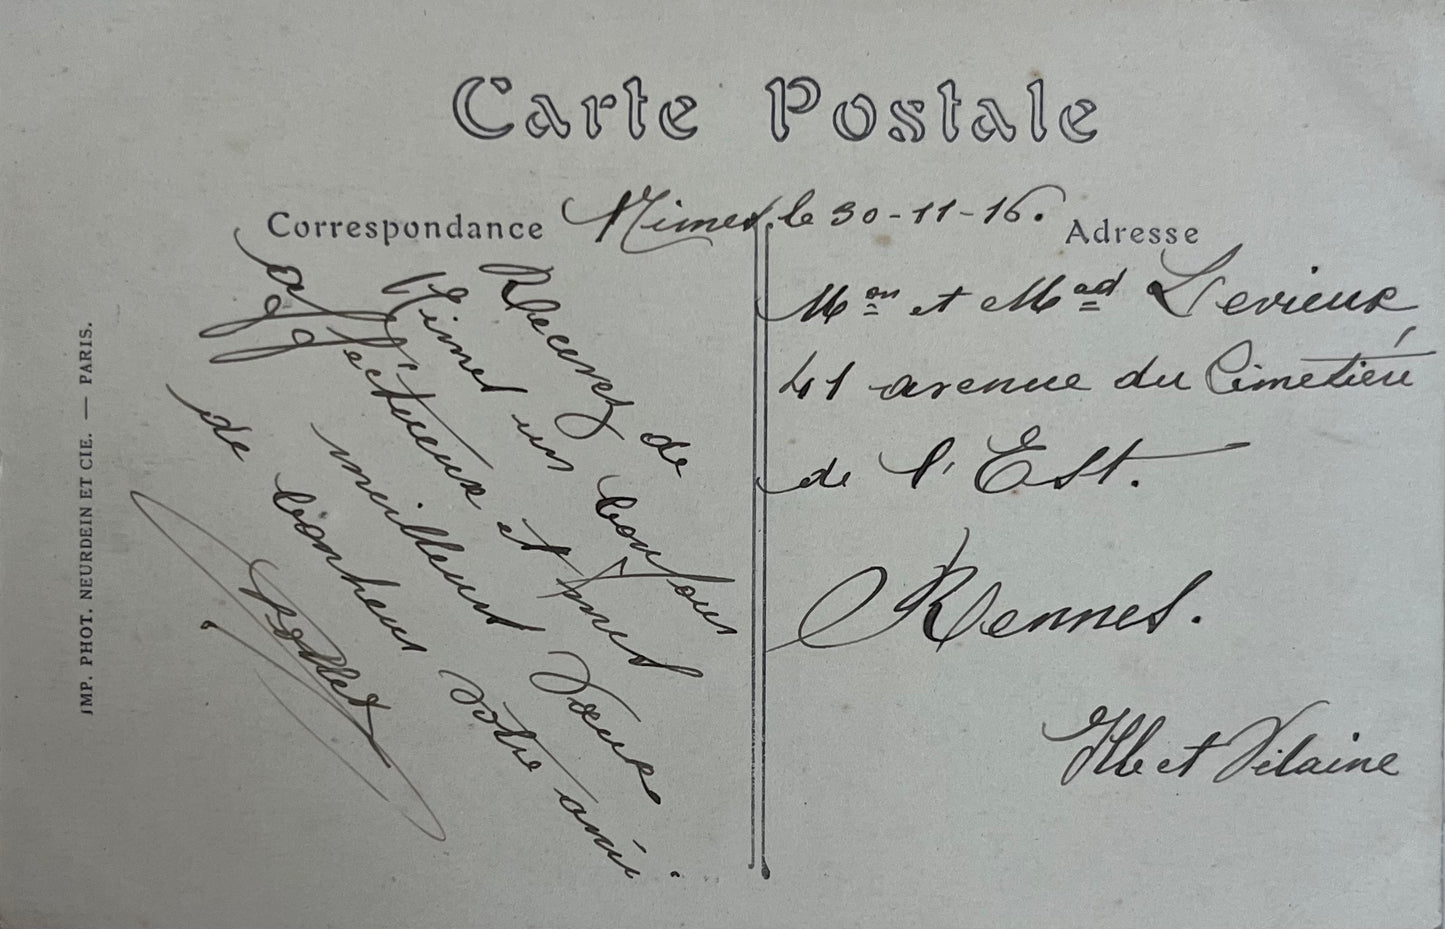 Carte Postale
Correspondance
Nimes, le 30-11-16.
Adresse
Recevez de
Nimes un bonjour
affectueux et mes
meilleurs voeux
de bonheur votre ami
Mon et Mad Levieux
41 avenue du Cimetière
de l'Est.
Rennes.
Ille et Vilaine
IMP. PHOT. NEURDEIN ET CIE. — PARIS.